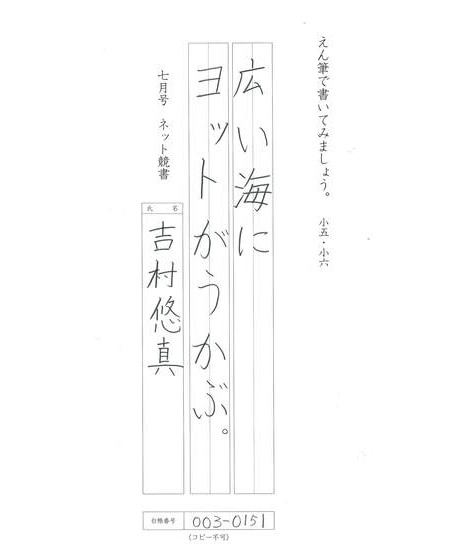 えん筆で書いてみましょう。 小五・小六
広い海に
ヨットがうかぶ。
七月号 ネット競書
氏名
吉村悠真
台帳番号 003-0151
(コピー不可)